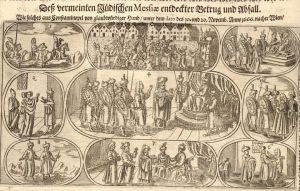 Deß vermeinten Jüdischen Messiæ entdeckter Betrug und Abfall.
Wie solches aus Constantinopel von glaubwürdiger Hand / unter dem dato des 10. und 20. Novemb. Anno 1666. nacher Wien /